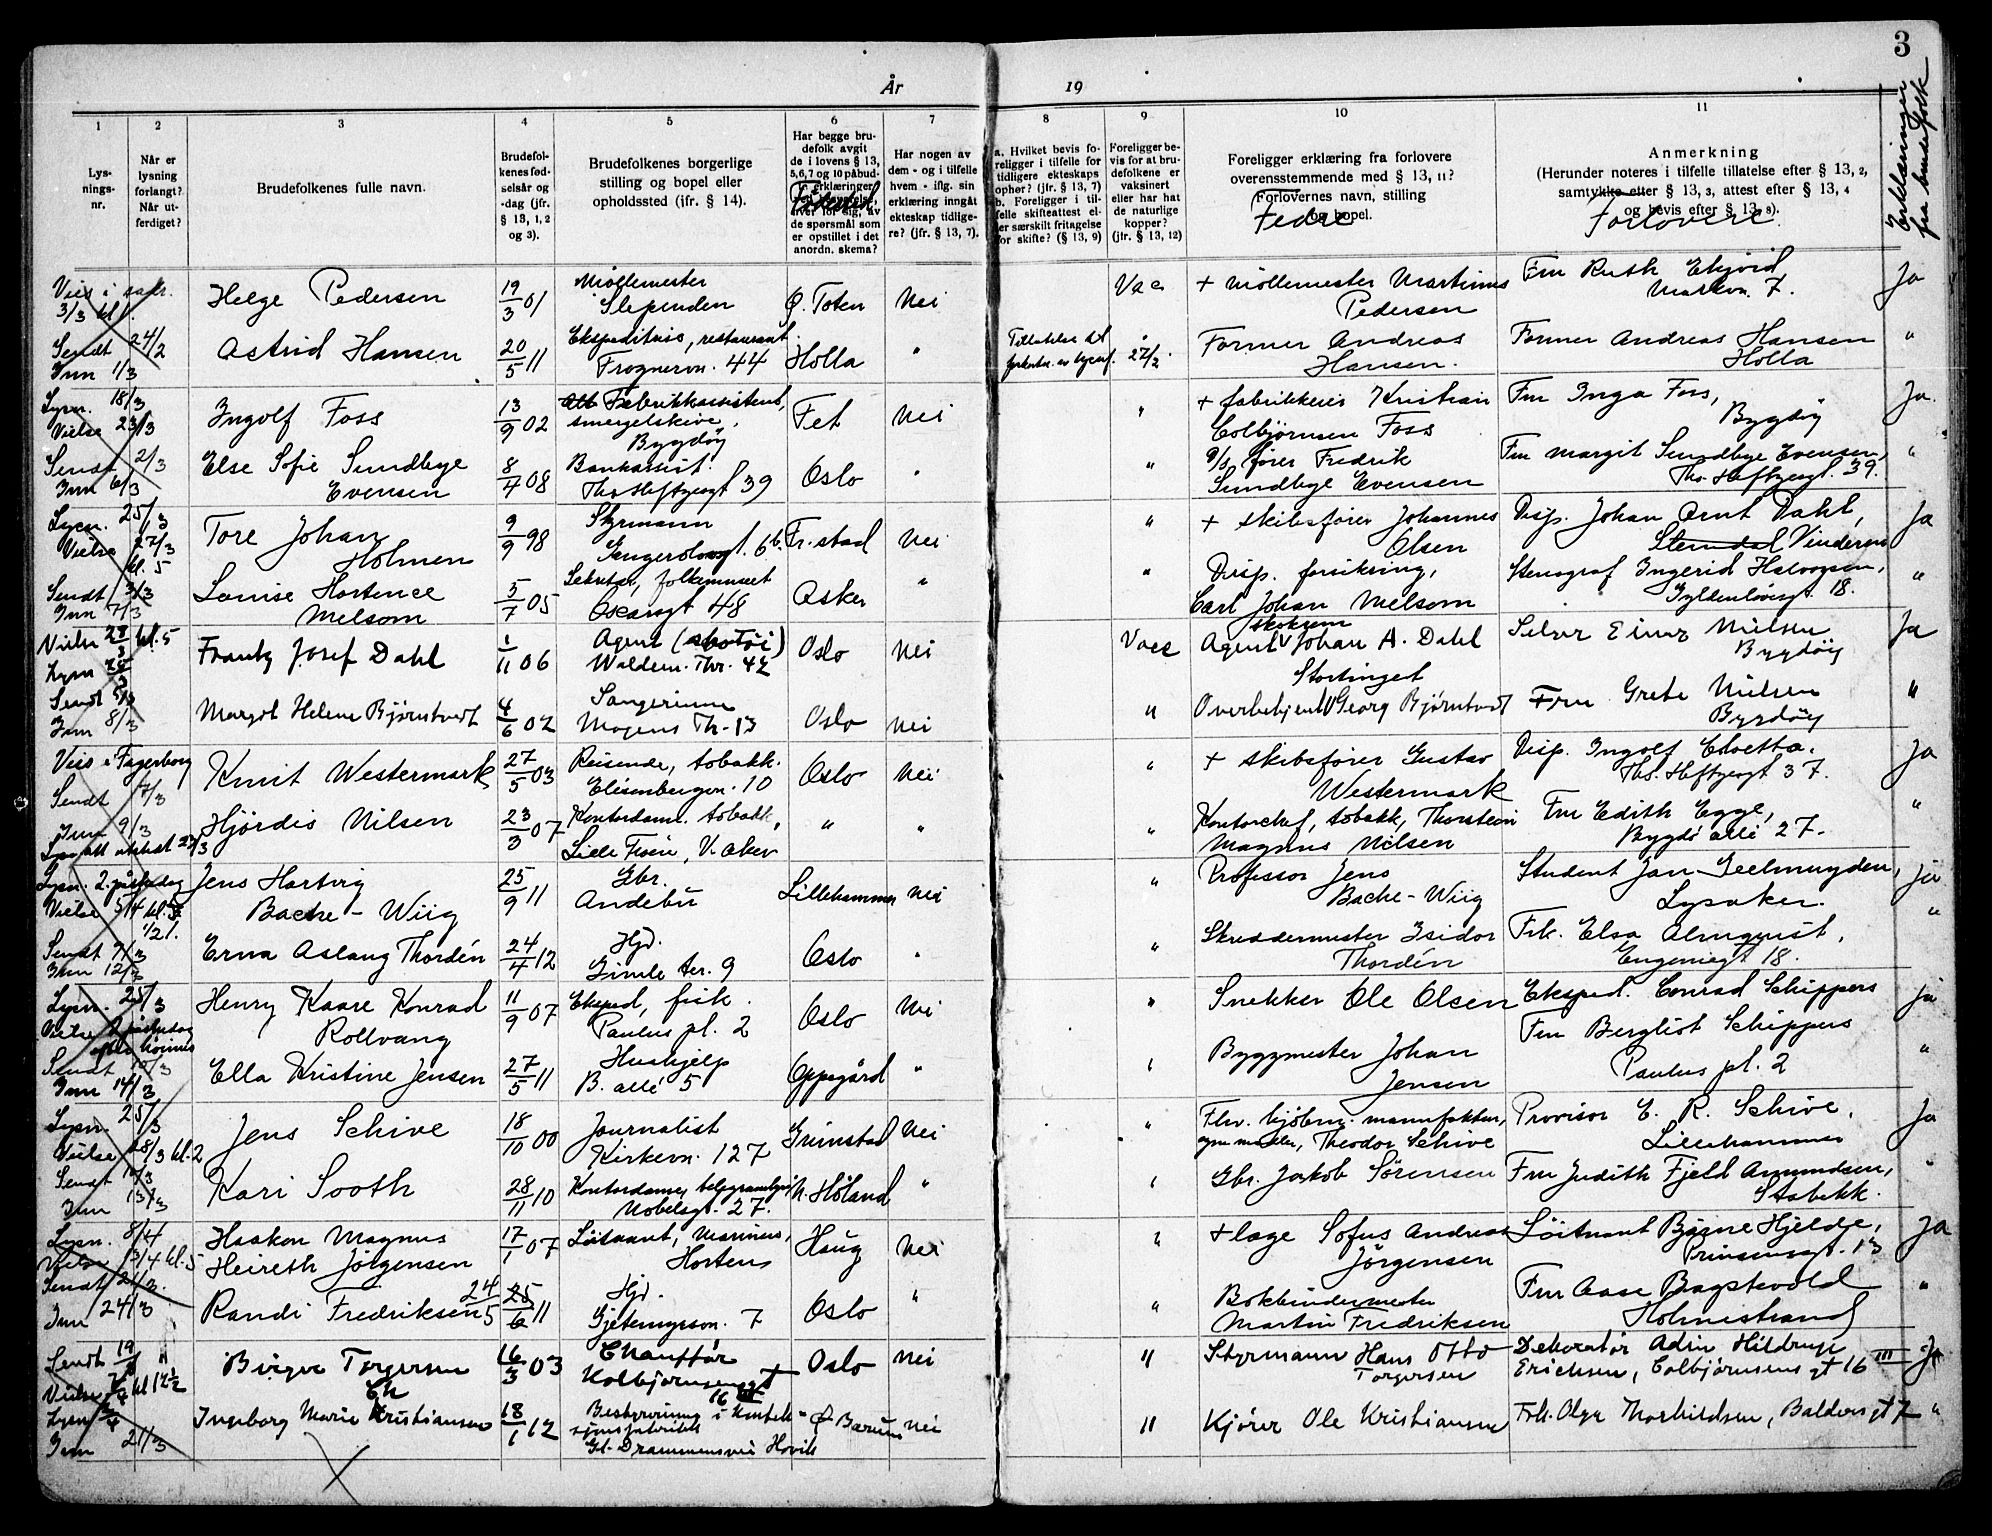 3
År
19
Erklæringer fra brudefolk
1
Lys-
nings-
nr.
2
Når er
lysning
forlangt?
Når ut-
ferdiget?
3
Brudefolkenes fulle navn.
4
Brudefol-
kenes fød-
selsår og
-dag (jfr.
§ 13, 1, 2
og 3).
5
Brudefolkenes borgerlige
stilling og bopel eller
opholdssted (jfr. § 14).
6
Har begge bru-
defolk avgit
de i lovens § 13,
5,6,7 og 10 påbud-
erklæringer
hver for sig, av
de spørsmål som
er opstillet i det
anordn. skema?
Fødested
7
Har nogen av
dem - og i tilfelle
hvem - iflg. sin
erklæring inngåt
ekteskap tidlige-
re? (jfr. § 13, 7).
8
a. Hvilket bevis fo-
religger i tilfelle for
tidligere ekteskaps
ophør? (jfr. § 13, 7)
b. Foreligger i til-
felle skifteattest el-
ler særskilt fritagelse
for skifte? (§ 13, 9)
9
Foreligger be-
vis for at bru-
defolkene er
vaksinert
eller har hat
de naturlige
kopper?
(jfr. § 13, 12)
10
Foreligger erklæring fra forlovere
overensstemmende med § 13, 11?
Forlovernes navn, stilling
og bopel.
Fedre
11
Anmerkning
(Herunder noteres i tilfelle tillatelse efter § 13, 2,
samtykke efter § 13, 3, attest efter § 13, 4
og bevis efter § 13, 8).
Forlovere
Vies i
3/3 kl.
Helge Pedersen
19/3 01
Møllemester
Slependen
Ø. Toten
Nei
Vac
+ Møllemester Martinius
Pedersen
Fru Ruth
7.
Ja
Sendt 24/2
Inn 1/3
Astrid Hansen
20/5 11
Ekspeditrise, restaurant
Frognervn. 44
Holla
"
27/2.
Former Andreas
Hansen.
Former Andreas Hansen
Holla
"
Lysn. 18/3
Vielse 23/3
Ingolf Foss
13/9 02
Fabrikkassistent,
smergelskive,
Bygdøy
Fet
Nei
"
+ fabrikkeier Kristian
Colbjørnsen Foss
Fru Inga Foss,
Bygdøy
Ja.
Sendt 2/3
Inn 6/3
Else Sofie Sundbye
Evensen
8/7 08
Bankassist.
Tho. Heftyesgt 39
Oslo
"
"
fører Fredrik
Sundbye Evensen
Fru Margit Sundbye Evensen,
Tho. Heftyesgt. 39.
"
Lysn. 25/3
Vielse 27/3
kl. 5
Tore Johan
Holmen
9/9 98
Styrmann
6b.
Fr.stad
Nei
"
+ skibsfører Johannes
Olsen
Disp. Johan Arnt Dahl,
Vinderen
Ja
Sendt 3/3
Inn 7/3
Louise Hortence
Melsom
5/7 05
Sekretær, folkemuseet
Oscarsgt 48
Asker
"
"
Disp. forsikring,
Carl Johan Melsom
Stenograf Ingerid Halvorsen,
Gyldenløvesgt. 18.
"
Vielse kl. 5
Lysn
Frantz Josef Dahl
1/11 06
Agent (skotøi)
Waldem. Thr. 42
Oslo
Nei
Vacc
Agent Johan A. Dahl
Stortinget
Selver Einar Nielsen
Bygdøy
Ja
Sendt 5/3
Inn 8/3
Margot Helene Bjørnstvedt
4/6 02
Sangerinne
Mogens Th-13
Oslo
Nei
"
Overbetjent Georg Bjørntvedt
Fru Grete Nielsen
Bygdøy
"
Vies i Fagerborg
Sendt 7/3
Knut Westermark
27/5 03
Reisende, tobakk.
Elisenbergvn. 10
Oslo
Nei
"
+ skibsfører Gustav
Westermark
Disp. Ingolf Cloetta.
Tho. Heftyesgt 37.
Ja
Inn 9/3
Hjördis Nilsen
23/3 07
Kontordame. tobakk,
Lille Frøen, V. Aker
"
"
"
Kontorchef, tobakk, Thorstein
Magnus Nilsen
Fru Edith Egge,
Bygdø allé 27.
"
Lysn. 2. påskedag
Vielse 5/4 kl.
Jens Hartvig
Bache-Wiig
25/9 11
Gbr.
Andebu
Lillehammer
Nei
"
Professor Jens
Bache-Wiig
Student Jan Geelmuyden,
Lysaker.
ja
Sendt 7/3
Inn 12/3
Erna Aslaug Thordén
24/4 12
Hjd.
Gimle ter. 9
Oslo
"
"
Skreddermester Isidor
Thordén
Frk. Elsa Almqvist,
Eugeniegt 18.
"
Lysn. 25/3
Vielse 2 påskedag
Henry Kaare Konrad
Rollvang
11/9 07
Eksped, fisk.
Paulus pl. 2
Oslo
Nei
"
Snekker Ole Olsen
Eksped. Conrad Schippers
Fru Bergliot Schippers
ja
Sendt 10/3
Inn 14/3
Ella Kristine Jensen
27/5 11
Hushjelp
B. allé 5
Oppegård
"
Byggmester Johan
Jensen
Paulus pl. 2
"
Lysn. 25/3
Vielse 28/3 kl. 2
Jens Schive
18/10 00
Journalist
Kirkevn. 127
Grimstad
Nei
"
Theodor Schive
Provisor E. R. Schive,
Lillehammer
Ja
Sendt
Inn 13/3
Kari Sooth
28/11 10
Kontordame,
Nobelsgt. 27.
N. Høland
"
Gbr. Jakob Sørensen
Fru Judith Fjeld Amundsen,
Stabekk.
"
Lysn. 8/4
Vielse 13/4 kl. 5
Haakon Magnus
Heireth Jørgensen
17/1 07
Løitnant, Marinen,
Horten
Haug
Nei
"
+ lage Sofus Andreas
Jørgensen
Løitnant Bjarne Hjelde,
Prinsensgt. 13
Ja
Sendt 21/3.
Inn 24/3
Randi Fredriksen
24/5
25/6 11
Hjd.
Gjetemyrsvn. 7
Oslo
"
"
Bokbindermester
Martin Fredriksen
Fru Aase Bagstevold
Holmestrand
"
Sendt 19/3
Vielse kl 12½
Birger Torgersen
16/3 03
Chauffør
Kolbjørnsensgt
16
Oslo
Nei
"
Styrmann Hans Otto
Torgersen
Dekoratør Adin Hildrup
Erichsen, Colbjørnsens gt 16 III
Ja
Lysn
Inn 21/3
Ch
Ingeborg Marie Kristiansen
18/1 12
Bestyrerinne i
Gl. Drammensvei Høvik
Ø Bærum
Nei
"
Kjører Ole Kristiansen
Frk. Olga Thorkildsen, Balders gt 7
"